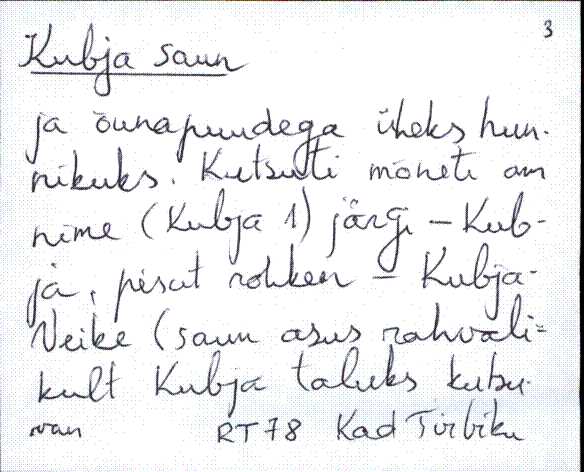 3
Kubja saun
ja õunapuudega üheks hun-
nikuks. Kutsuti mõneti am
nime (Kubja 1) järgi – Kub-
ja, pisut rohkem – Kubja-
Veike (saun asus rahvali=
kult Kubja taluks kutsu-
van
RT78 Kad Tirbiku